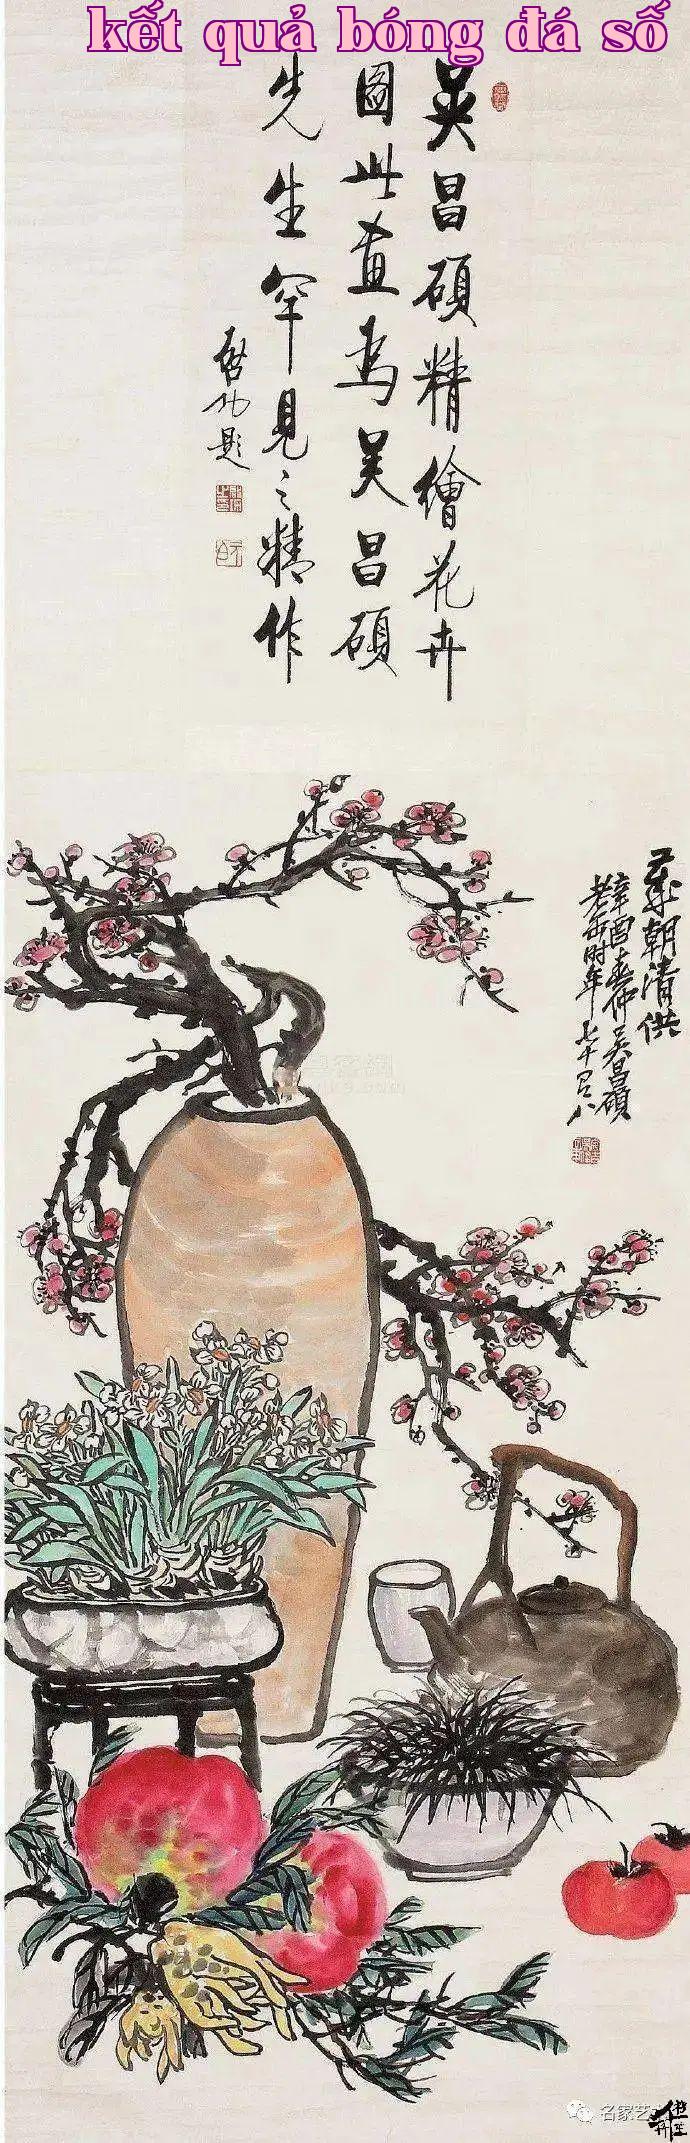 kết quả bóng đá số
吴昌硕精繪花卉
圖此畫為吴昌碩
先生罕見之精作
啓功題
歲朝清供
辛酉春仲吳昌碩
老缶时年七十又八
名家艺